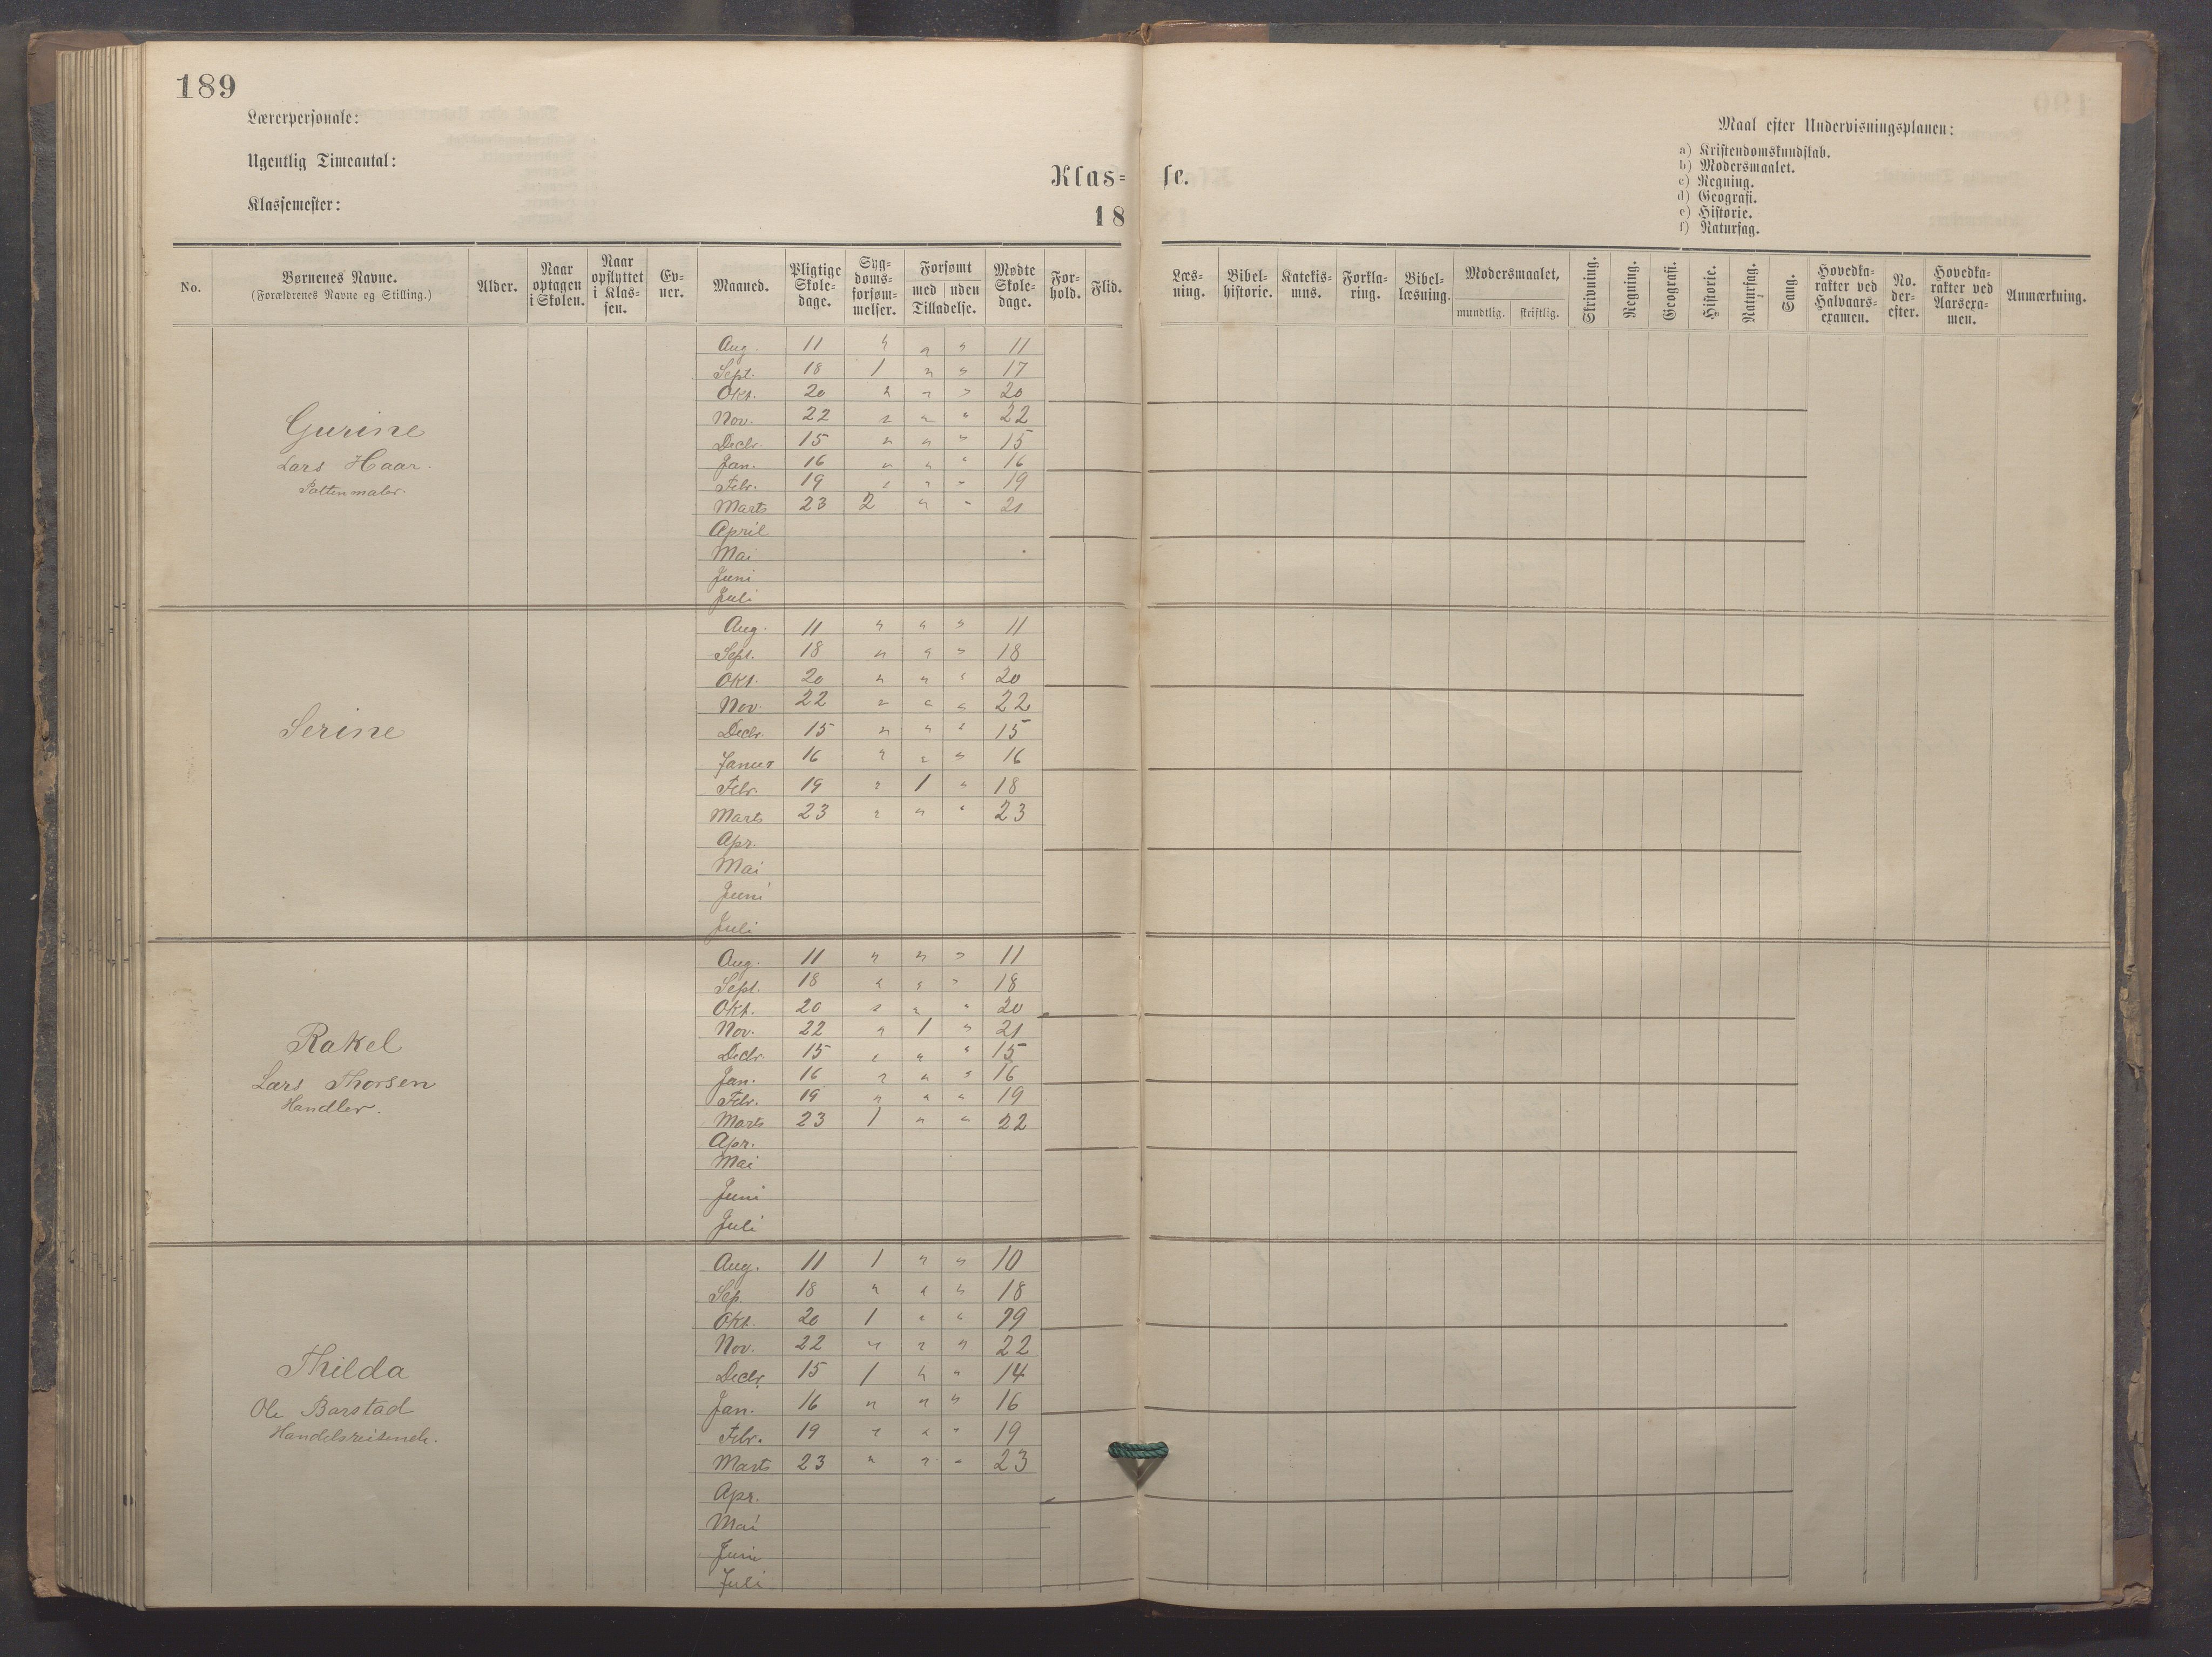 189
Lærerpersonale:
Ugentlig Timeantal:
Klassemester:
Klas= se.
18
Maal efter Undervisningsplanen:
a) Kristendomskundskab.
b) Modersmaalet.
c) Regning.
d) Geografi.
e) Historie.
f) Naturfag.
No. | Børnenes Navne. (Forældrenes Navne og Stilling.) | Alder. | Naar optagen i Skolen. | Naar opflyttet i Klas-sen. | Ev-ner. | Maaned. | Pligtige Skole-dage. | Syg-doms-forsøm-melser. | Forsømt med uden Tilladelse. | Mødte Skole-dage. | For-hold. | Flid. | Læs-ning. | Bibel-historie. | Katekis-mus. | Forkla-ring. | Bibel-læsning. | Modersmaalet, mundtlig. skriftlig. | Skrivning. | Regning. | Geografi. | Historie. | Naturfag. | Sang. | Hovedka-rakter ved Halvaars-examen. | No. der-efter. | Hovedka-rakter ved Aarsexa-men. | Anmærkning.
Gurine
Lars Haar.
Aug. 11 " " " 11
Sept. 18 1 " " 17
Okt. 20 " " " 20
Nov. 22 " " " 22
Decbr. 15 " " " 15
Jan. 16 " " " 16
Febr. 19 " " " 19
Marts 23 2 " " 21
April
Mai
Juni
Juli
Serine
Aug. 11 " " " 11
Sept. 18 " " " 18
Okt. 20 " " " 20
Nov. 22 " " " 22
Decbr. 15 " " " 15
Januar 16 " " " 16
Febr. 19 " 1 " 18
Marts 23 " " " 23
Apr.
Mai
Juni
Juli
Rakel
Lars Thorsen
Handler.
Aug. 11 " " " 11
Sept. 18 " " " 18
Okt. 20 " " " 20
Nov. 22 " 1 " 21
Decbr. 15 " " " 15
Jan. 16 " " " 16
Febr. 19 " " " 19
Marts 23 1 " " 22
Apr.
Mai
Juni
Juli
Thilda
Ole Barstad
Handelsreisende.
Aug. 11 1 " " 10
Sep. 18 " " " 18
Okt. 20 1 " " 19
Nov. 22 " " " 22
Decbr. 15 1 " " 14
Jan. 16 " " " 16
Febr. 19 " " " 19
Marts 23 " " " 23
Apr.
Mai
Juni
Juli